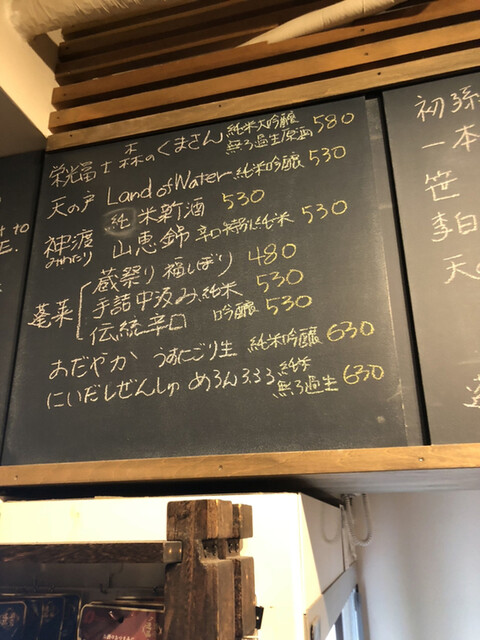 栄光冨士 森のくまさん 純米大吟醸 無ろ過生原酒 580
天の戸 Land of Water 純米吟醸 530
純米新酒 530
神渡 みわたり 山恵錦 辛口特別純米 530
蓬莱 蔵祭り 福しぼり 480
手詰中汲み 純米 530
伝統辛口 吟醸 530
おだやか うすにごり生 純米吟醸 630
にいだしぜんしゅ めろん3.33 純米 無ろ過生 630
初孫
一本
笹
李白
天の
t to
E.